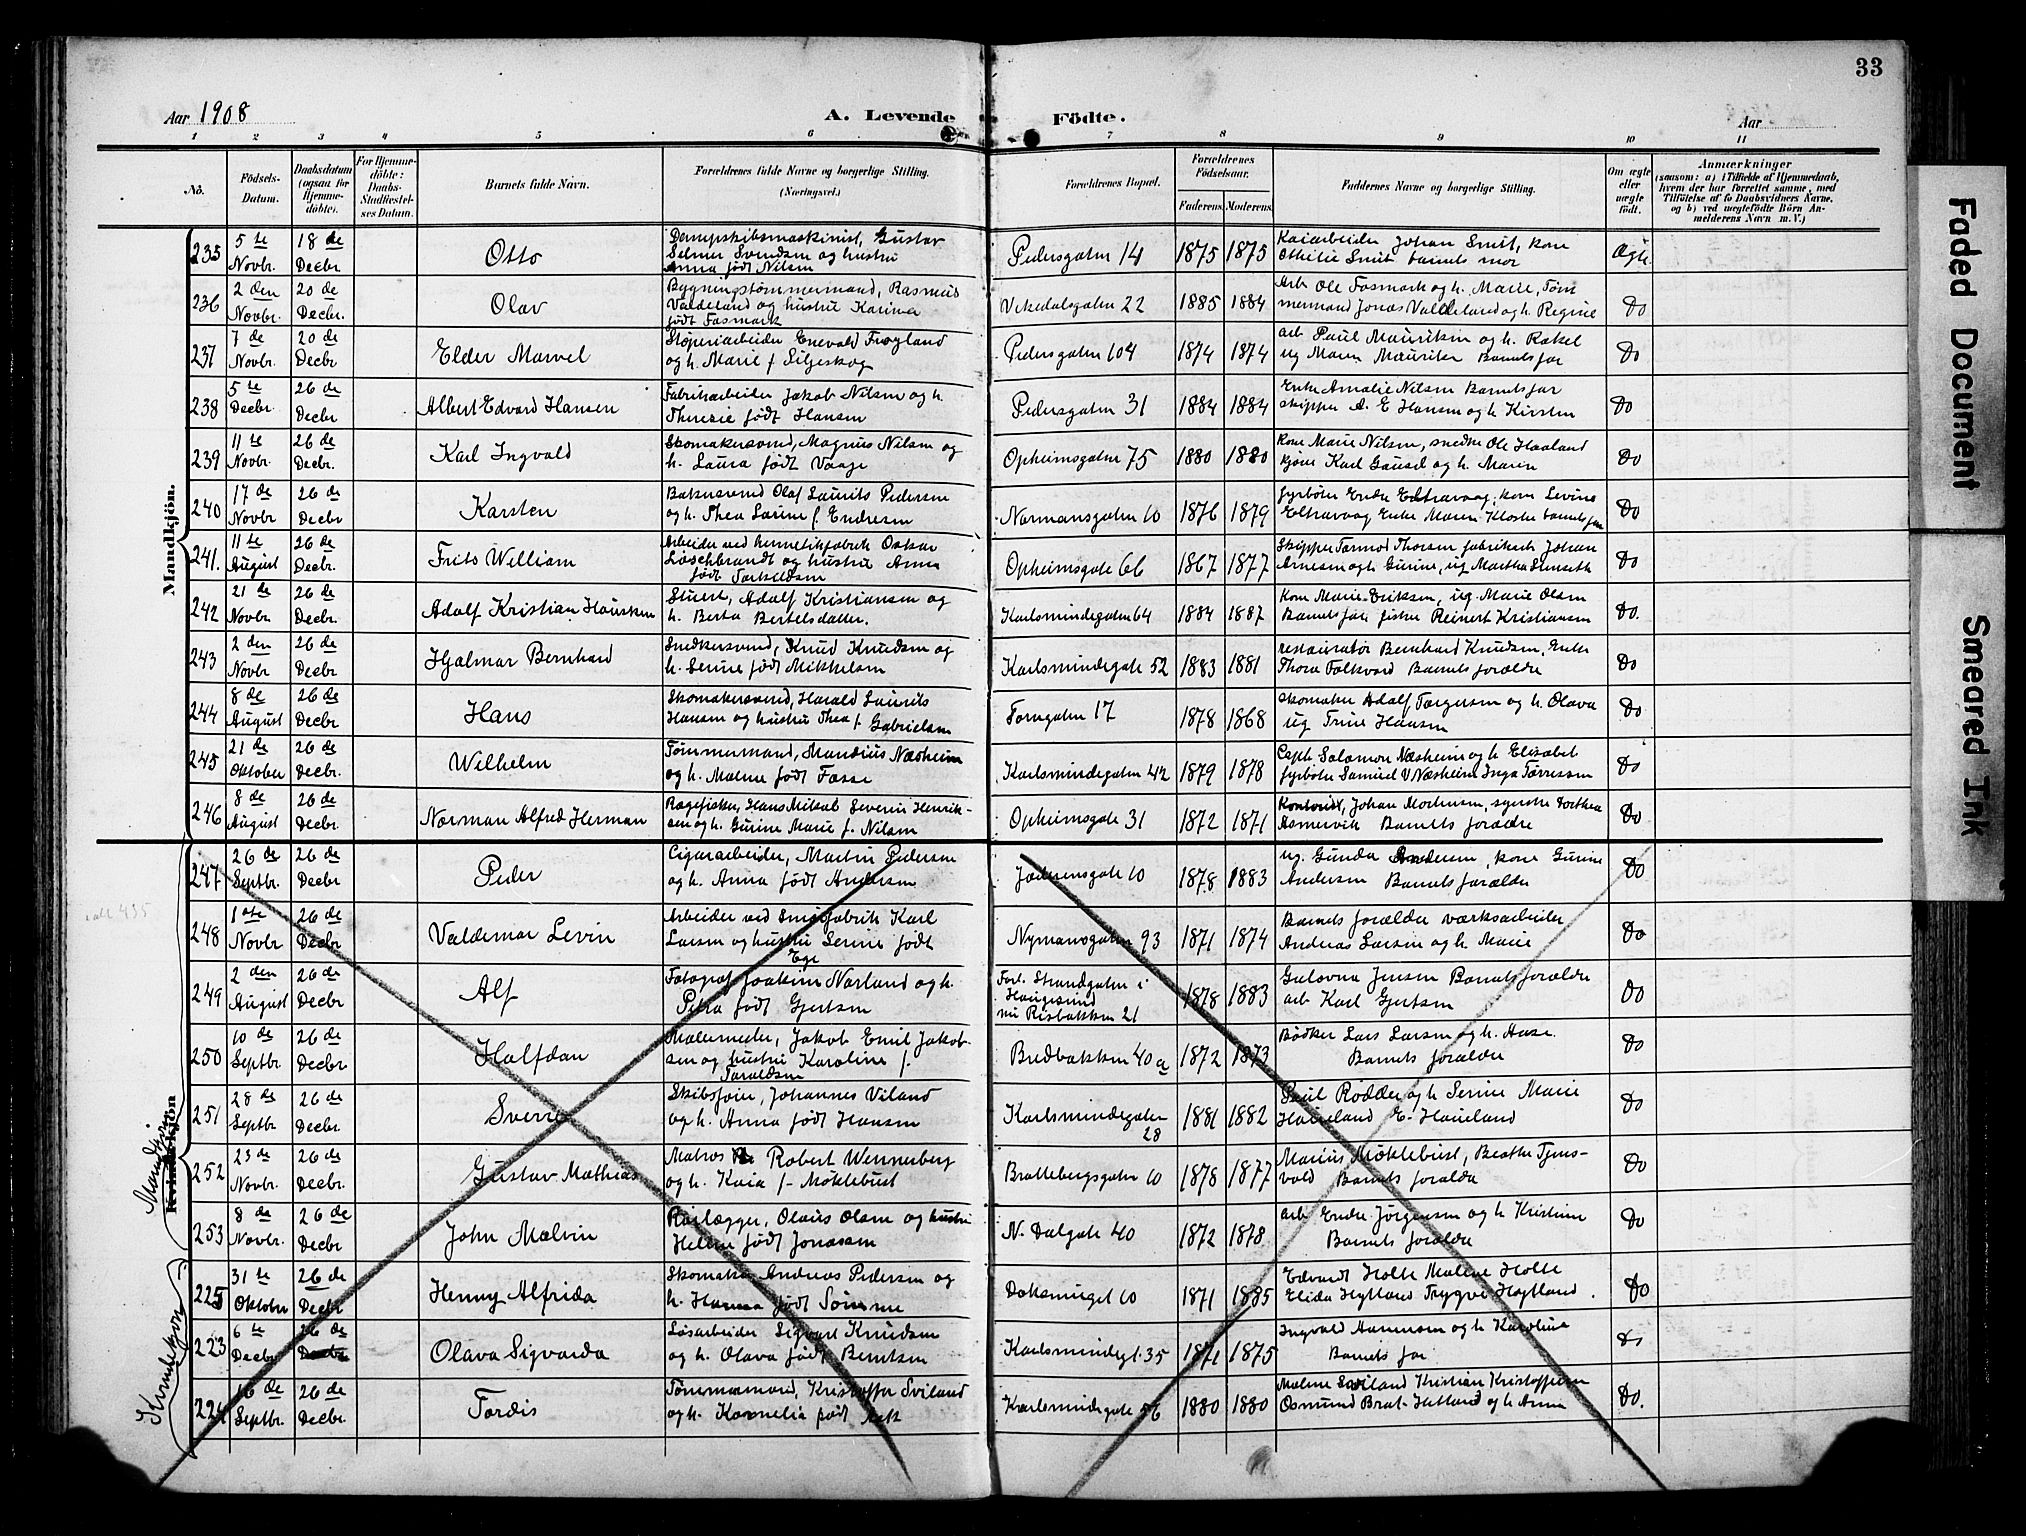 33
Aar 1908
A. Levende Födte.
Aar
1 2 3 4 5 6 7 8 9 10 11
No. Födsels-Datum. Daabsdatum (ogsaa for Hjemmedöbte). For Hjemmedöbte: Daabs-Stadfæstelses Datum. Barnets fulde Navn. Forældrenes fulde Navne og borgerlige Stilling. (Næringsvei.) Forældrenes Bopæl. Forældrenes Födselsaar. Faderens. Moderens. Faddernes Navne og borgerlige Stilling. Om ægte eller uægte födt. Anmærkninger
(saasom: a) i Tilfælde af Hjemmedaab, hvem der har forrettet samme, med Tilföielse af to Daabsvidners Navne, og b) ved uægtefödte Börn Anmelderens Navn m. V.)
Mandkjön.
235 5te Novbr. 18de Decbr Otto Dampskibsmaskinist, Gustav Selmer Svendsen og hustru Anna født Nilsen Pedersgaten 14 1875 1875 Kaiarbeider Johan Smit, kone Othilie Smit barnets mor Ægte
236 2den Novbr. 20de Decbr. Olav Bygningstømmermand, Rasmus Valdeland og hustru Karina født Fosmark Vikedalsgaten 22 1885 1884 Arb Ole Fosmark og h. Marie, Tømmermand Jonas Valdeland og h. Regine Do
237 7de Novbr. 20de Decbr Elder Marvel Støperiarbeider Enevald Frøyland og h. Marie f Liljeskog Pedersgaten 104 1874 1874 arb Paul Mauritsen og h. Rakel ug Maren Mauritsen Barnets far Do
238 5te Decbr. 26de Decbr Albert Edvard Hansen Fabrikarbeider Jakob Nilsen og h. Theresie født Hansen Pedersgaten 31 1884 1884 Enke Amalie Nilsen Barnets far skipper A. E Hansen og h. Kirsten Do
239 11te Novbr. 26de Decbr. Karl Ingvald Skomakersvend, Magnus Nilsen og h. Laura født Vaage Opheimsgaten 75 1880 1880 Kone Marie Nilsen, snedker Ole Haaland kjører Karl Gausel og h. Maren Do
240 17de Novbr 26de Decbr Karsten Bakersvend Olaf Laurits Pedersen og h. Thea Laurine f. Endresen Normansgaten 10 1876 1879 fyrbøter Endre Eltravaag, kone Levine Eltravaag Enke Maren Kloster barnets far Do
241. 11te August 26de Decbr. Frits William Arbeider ved hermetikfabrik Oskar Löschbrandt og hustru Anna født Torkildsen Opheimsgate 66 1867 1877 Skipper Tormod Thorsen fabrikarb Johan Arnesen og h. Gurine, ug Martha Do
242 21de Novbr 26de Decbr. Adolf Kristian Hausken Stuert, Adolf Kristiansen og h. Berta Bertelsdatter. Karlsmindegaten 64 1884 1887 Kone Marie Eriksen, ug. Marie Olsen Barnets far fisker Reinert Kristiansen Do.
243 2den Novbr 26de Decbr. Hjalmar Bernhard Snedkersvend, Knud Knudsen og h. Serine født Mikkelsen Karlsmindegate 52 1883 1881 restauratør Bernhard Knudsen, Enke Thora Folkvord Barnets forældre Do
244 8de August 26de Decbr Hans Skomakersvend, Harald Laurits Hansen og hustru Thea f. Gabrielsen Torngaten 17 1878 1868 Skomaker Adolf Torgersen og h. Olava ug Trine Hansen Do
245 21de Oktober 26de Decbr. Wilhelm Tømmermand, Mandius Næsheim og h. Malene født Fosse Karlsmindegaten 42 1879 1878 Capt Salomon Næsheim og h. Elisabet fyrbøter Samuel V Næsheim Inga Tørressen Do
246 8de August 26de Decbr. Norman Alfred Herman Røgefisker, Hans Mikal Severin Henriksen og h. Gurine Marie f. Nilsen Opheimsgate 31 1872 1871 Kontorist, Johan Mortensen, syerske Dorthea Aamervik Barnets forældre Do
Kvindekjön Mandkjøn
i alt 435
247 26de Septbr. 26de Decbr Peder Cigararbeider, Martin Pedersen og h. Anna født Andersen Jæderensgate 10 1878 1883 ug. Gunda Andersen, kone Gurine Andersen Barnets forældre Do
248 1ste Novbr 26de Decbr. Valdemar Levin Arbeider ved Smørfabrik Karl Larsen og hustru Serine født Ege Nymansgaten 93 1871 1874 Barnets forælder værksarbeider Andreas Larsen og h. Marie Do
249 2den August 26de Decbr Alf Fotograf Joakim Norland og h. Petra født Gjertsen Forl. Strandgaten i Haugesund nu Risbakken 21 1878 1883 Gulovna Jensen Barnets forældre arb Karl Gjertsen Do
250 10de Septbr. 26de Decbr Halfdan Malermester, Jakob Emil Jakobsen og hustru Karoline f. Taraldsen Bredbakken 40a 1872 1873 Bødker Lars Larsen og h. Aase. Barnets forældre Do
251 28de Septbr 26de Decbr. Sverre Skibsfører, Johannes Viland og h. Anna født Hansen Karlsmindegaten 28 1881 1882 Paul Rødder og h Serine Marie Haueland E. Haueland Do
252 23de Novbr. 26de Decbr. Gustav Mathias Matros Robert Wennerberg og h. Kaia f. Møklebust Brattebergsgaten 10 1878 1877 Marius Møklebust, Beathe Tjensvold Barnets forældre Do
253 8de Novbr. 26de Decbr John Malvin Rørlægger, Olaus Olsen og hustru Helene født Jonassen N. Dalgate 40 1872 1878 arb Endre Jørgensen og h Kristine Barnets forældre Do
Kvindekjøn
225 31te Oktober 26de Decbr Henny Alfrida Skomaker Andreas Pedersen og h. Hanna født Sømme Doksmuget 10 1871 1885 Edvardt Holte Malene Holte Elida Høtland Trygve Høtland. Do
223 6te Decbr 26de Decbr Olava Sigvarda Løsarbeider Sigvart Knudsen og h. Olava født Berntsen Karlsmindegt. 35 1871 1875 Ingvald Hanensen og h Karoline Barnets far Do
224 16de Septbr. 26de Decbr. Tordis Tømmermand, Kristoffer Sviland og h. Kornelia født Karlsmindegate 56 1880 1880 Malene Sviland Kristian Kristoffersen Osmund Brat-Hetland og h Anna Do.
Faded Document
Smeared Ink